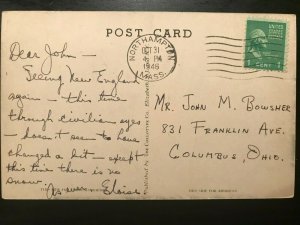 POST CARD
NORTHAMPTON
OCT 31
4 PM
1946
MASS.
UNITED STATES
POSTAGE
1 CENT 1
Dear John –
Seeing New England
again – this time
through civilian eyes
– doesn't seem to have
changed a bit – except
this time there is no
snow.
As ever, Eloise
MR. JOHN M. BOWSHER
831 FRANKLIN AVE.
COLUMBUS, OHIO.